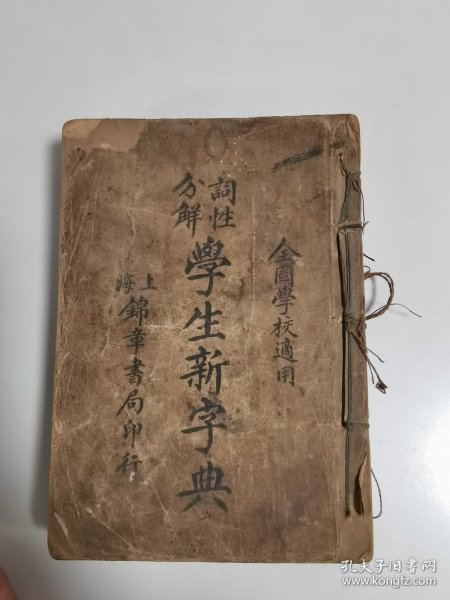 全國學校適用
詞性
分解
學生新字典
上海
錦章書局印行
孔夫子旧书网
www.kongfz.com